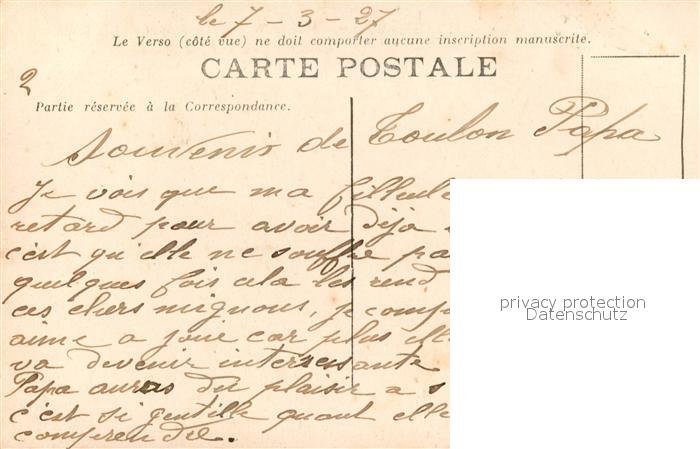 le 7 - 3 - 27
Le Verso (côté vue) ne doit comporter aucune inscription manuscrite.
2
CARTE POSTALE
Partie réservée à la Correspondance.
Souvenir de Toulon Papa
Je vois que ma filleule
retard pour avoir déja
c'est qu'elle ne souffre pa
quelques fois cela les rend
ces chers mignons, je comp
aime a joué car plus elle
va devenir interessante
Papa auras du plaisir a s
c'est si gentille quant elle
comprendre.
privacy protection
Datenschutz